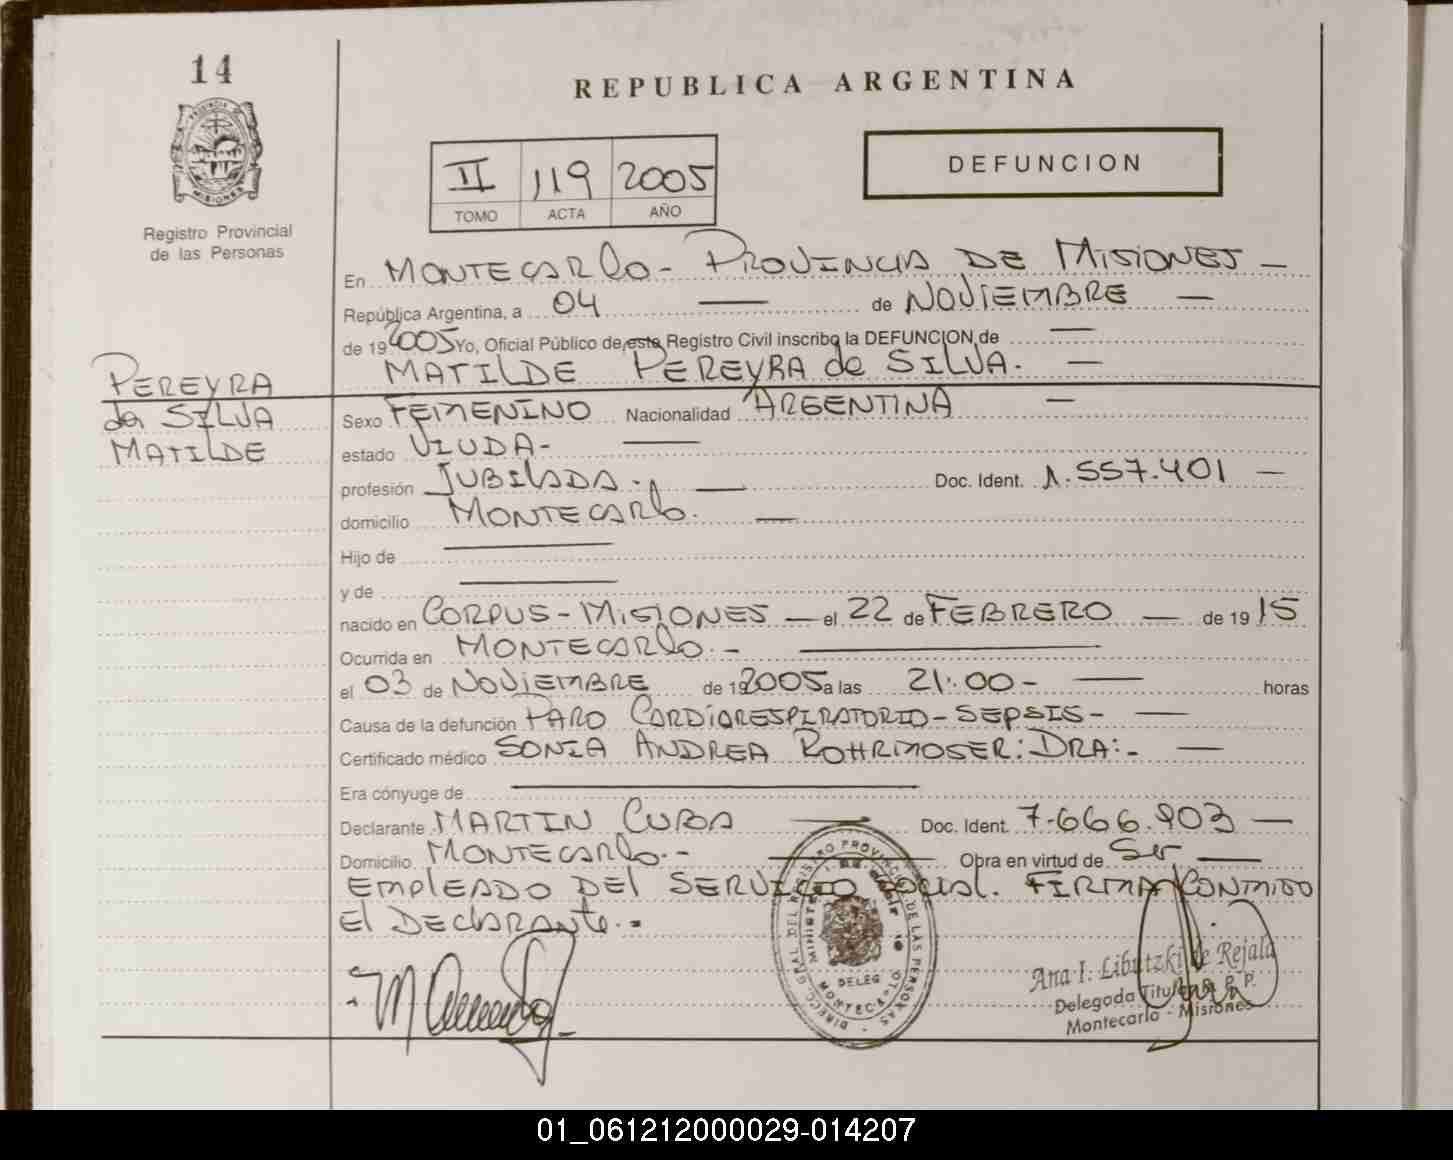 14
REPUBLICA ARGENTINA
PROVINCIA DE
MISIONES
II 119 2005
TOMO ACTA AÑO
DEFUNCION
Registro Provincial
de las Personas
En MONTECARLO - PROVINCIA DE MISIONES —
República Argentina, a 04 — de NOVIEMBRE —
de 192005 Yo, Oficial Público de este Registro Civil inscribo la DEFUNCION de —
MATILDE PEREYRA de SILVA. —
PEREYRA
de SILVA
MATILDE
Sexo FEMENINO Nacionalidad ARGENTINA —
estado VIUDA- —
profesión JUBILADA. — Doc. Ident. 1.557.401 —
domicilio MONTECARLO. —
Hijo de —
y de —
nacido en CORPUS - MISIONES — el 22 de FEBRERO — de 1915
Ocurrida en MONTECARLO. - —
el 03 de NOVIEMBRE de 192005 a las 21:00 - — horas
Causa de la defunción PARO CARDIORESPIRATORIO - SEPSIS - —
Certificado médico SONIA ANDREA ROHRMOSER: DRA: - —
Era cónyuge de —
Declarante MARTIN CUBA — Doc. Ident. 7.666.903 —
Domicilio MONTECARLO. - — Obra en virtud de Ser —
EMPLEADO DEL SERVICIO SOCIAL. FIRMA CONMIGO
El DECLARANTE. -
DIRECC. GRAL DEL REGISTRO PROVINCIAL DE LAS PERSONAS
DELEG
MONTECARLO
Ana I. Libutzki de Rejala
Delegada Titular R. P. P.
Montecarlo - Misiones
01_061212000029-014207